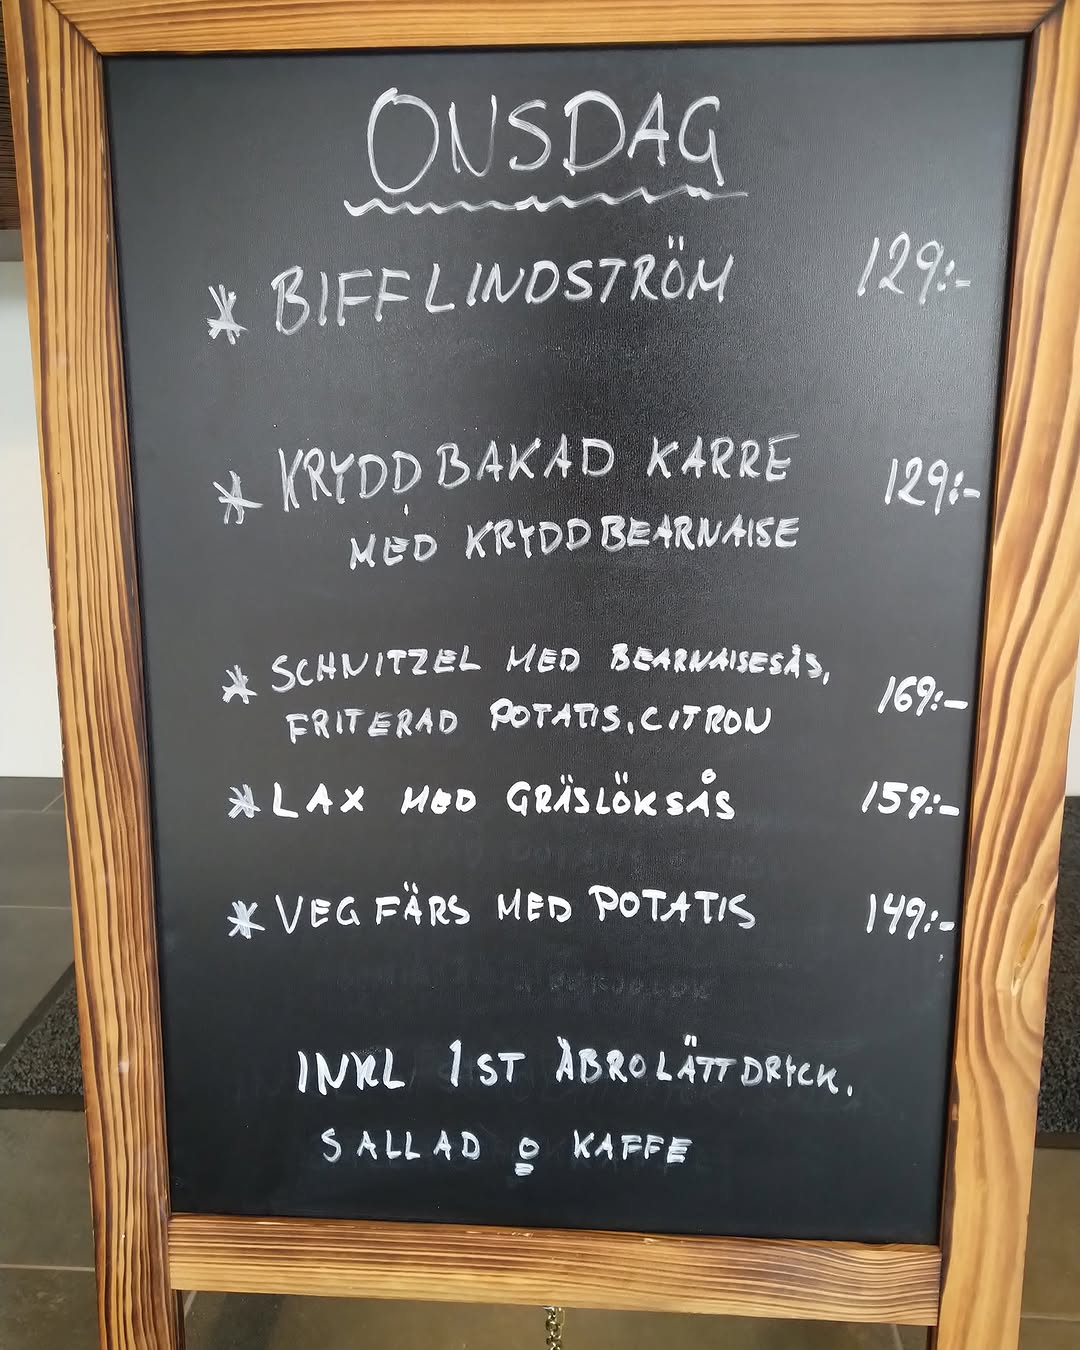 ONSDAG
* BIFF LINDSTRÖM 129:-
* KRYDDBAKAD KARRE 129:-
MED KRYDDBEARNAISE
* SCHNITZEL MED BEARNAISESÅS,
FRITERAD POTATIS, CITRON 169:-
* LAX MED GRÄSLÖKSÅS 159:-
* VEGFÄRS MED POTATIS 149:-
INKL 1ST ÅBRO LÄTTDRYCK,
SALLAD o KAFFE